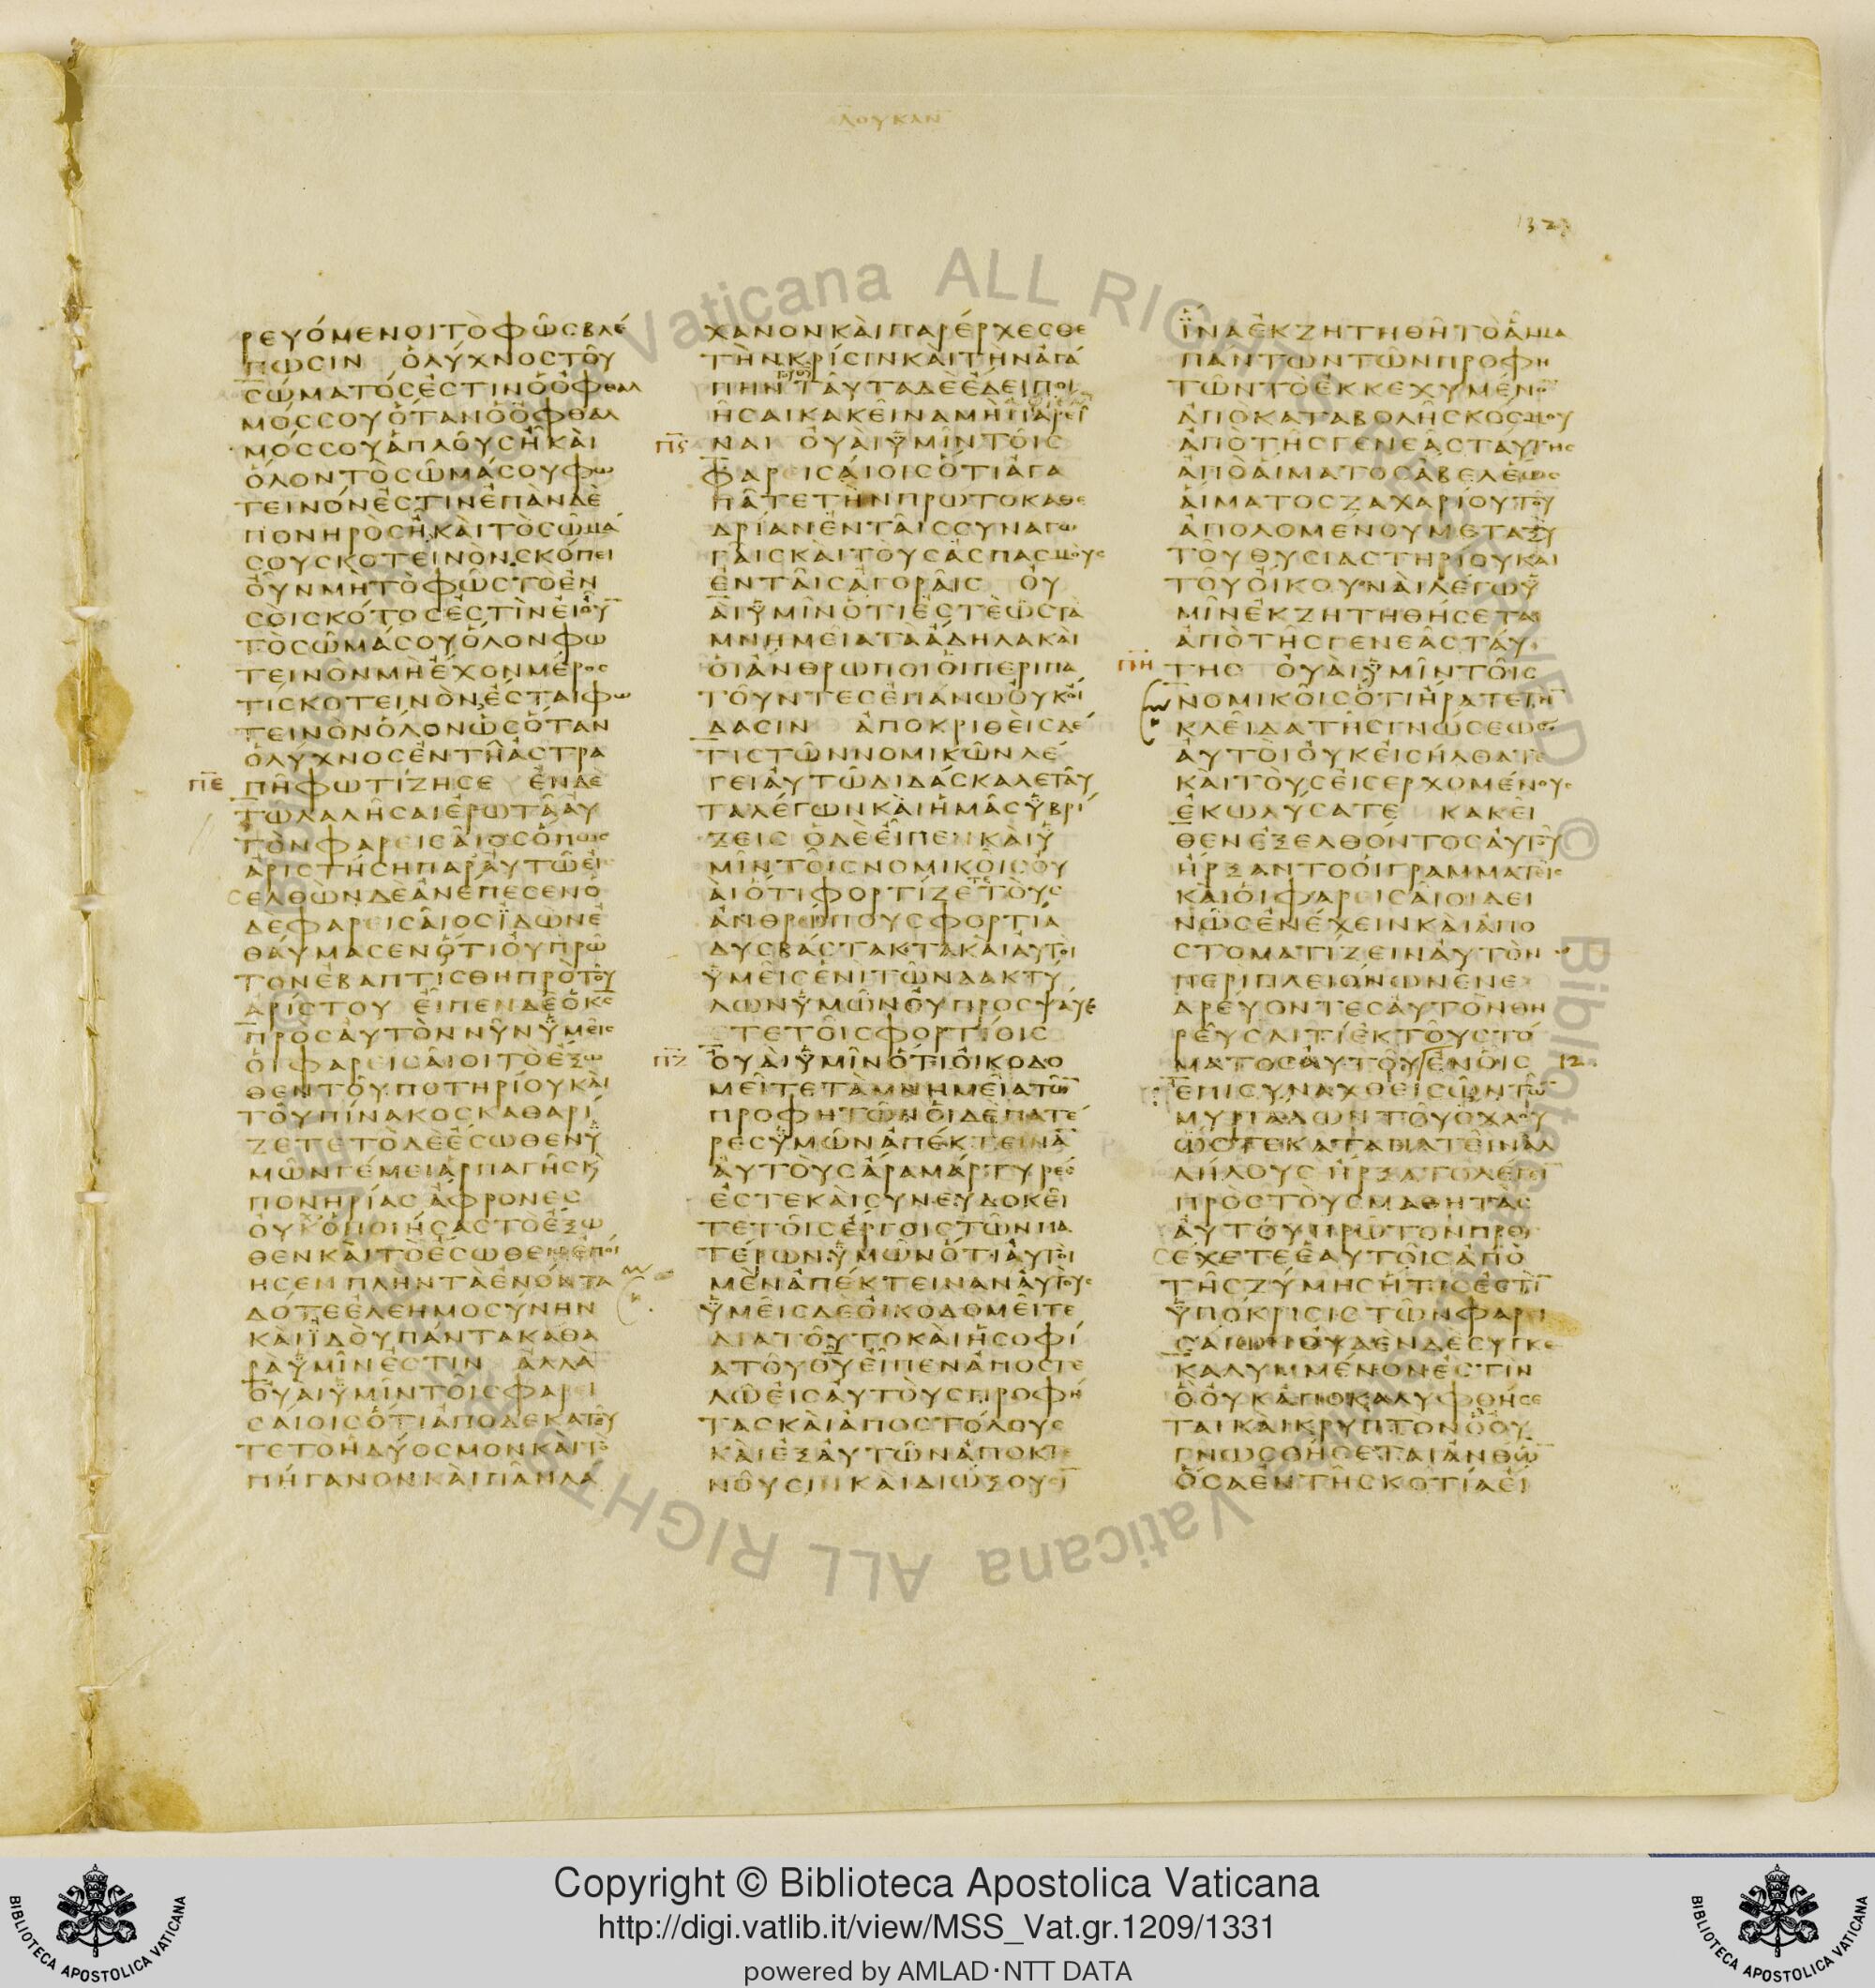 ΛΟΥΚΑΝ
ΡΕΥΟΜΕΝΟΙΤΟΦΩΣΒΛΕ
ΠΩΣΙΝ ΟΛΥΧΝΟΣΤΟΥ
ΣΩΜΑΤΟΣΕΣΤΙΝΟΟΦΘΑΛ
ΜΟΣΣΟΥΟΤΑΝΟΟΦΘΑΛ
ΜΟΣΣΟΥΑΠΛΟΥΣΗΚΑΙ
ΟΛΟΝΤΟΣΩΜΑΣΟΥΦΩ
ΤΕΙΝΟΝΕΣΤΙΝΕΠΑΝΔΕ
ΠΟΝΗΡΟΣΗΚΑΙΤΟΣΩΜΑ
ΣΟΥΣΚΟΤΕΙΝΟΝΣΚΟΠΕΙ
ΟΥΝΜΗΤΟΦΩΣΤΟΕΝ
ΣΟΙΣΚΟΤΟΣΕΣΤΙΝΕΙΟΥ
ΤΟΣΩΜΑΣΟΥΟΛΟΝΦΩ
ΤΕΙΝΟΝΜΗΕΧΟΝΜΕΡΟΣ
ΤΙΣΚΟΤΕΙΝΟΝΕΣΤΑΙΦΩ
ΤΕΙΝΟΝΟΛΟΝΩΣΟΤΑΝ
ΟΛΥΧΝΟΣΕΝΤΗΑΣΤΡΑ
ΠΕ ΠΗΦΩΤΙΖΗΣΕ ΕΝΔΕ
ΤΩΛΑΛΗΣΑΙΕΡΩΤΑΑΥ
ΤΟΝΦΑΡΕΙΣΑΙΟΣΟΠΩΣ
ΑΡΙΣΤΗΣΗΠΑΡΑΥΤΩΕΙ
ΣΕΛΘΩΝΔΕΑΝΕΠΕΣΕΝΟ
ΔΕΦΑΡΕΙΣΑΙΟΣΪΔΩΝΕ
ΘΑΥΜΑΣΕΝΟΤΙΟΥΠΡΩ
ΤΟΝΕΒΑΠΤΙΣΘΗΠΡΟΤΟΥ
ΑΡΙΣΤΟΥ ΕΙΠΕΝΔΕΟΚΣ
ΠΡΟΣΑΥΤΟΝΝΥΝΫΜΕΙΣ
ΟΙΦΑΡΕΙΣΑΙΟΙΤΟΕΞΩ
ΘΕΝΤΟΥΠΟΤΗΡΙΟΥΚΑΙ
ΤΟΥΠΙΝΑΚΟΣΚΑΘΑΡΙ
ΖΕΤΕΤΟΔΕΕΣΩΘΕΝΫ
ΜΩΝΓΕΜΕΙΑΡΠΑΓΗΣΚ
ΠΟΝΗΡΙΑΣΑΦΡΟΝΕΣ
ΟΥΧΟΠΟΙΗΣΑΣΤΟΕΞΩ
ΘΕΝΚΑΙΤΟΕΣΩΘΕΝΕΠΟΙ
ΗΣΕΝΠΛΗΝΤΑΕΝΟΝΤΑ
ΔΟΤΕΕΛΕΗΜΟΣΥΝΗΝ
ΚΑΙΪΔΟΥΠΑΝΤΑΚΑΘΑ
ΡΑΫΜΙΝΕΣΤΙΝ ΑΛΛΑ
ΟΥΑΙΫΜΙΝΤΟΙΣΦΑΡΕΙ
ΣΑΙΟΙΣΟΤΙΑΠΟΔΕΚΑΤΟΥ
ΤΕΤΟΗΔΥΟΣΜΟΝΚΑΙΤΟ
ΠΗΓΑΝΟΝΚΑΙΠΑΝΛΑ
ΧΑΝΟΝΚΑΙΠΑΡΕΡΧΕΣΘΕ
ΤΗΝΚΡΙΣΙΝΚΑΙΤΗΝΑΓΑ
ΠΗΝΤΑΥΤΑΔΕΕΔΕΙΠΟΙ
ΗΣΑΙΚΑΚΕΙΝΑΜΗΠΑΡΕΙ
ΠϚ ΝΑΙ ΟΥΑΙΫΜΙΝΤΟΙΣ
ΦΑΡΕΙΣΑΙΟΙΣΟΤΙΑΓΑ
ΠΑΤΕΤΗΝΠΡΩΤΟΚΑΘΕ
ΔΡΙΑΝΕΝΤΑΙΣΣΥΝΑΓΩ
ΓΑΙΣΚΑΙΤΟΥΣΑΣΠΑΣΜΟΥΣ
ΕΝΤΑΙΣΑΓΟΡΑΙΣ ΟΥ
ΑΙΫΜΙΝΟΤΙΕΣΤΕΩΣΤΑ
ΜΝΗΜΕΙΑΤΑΑΔΗΛΑΚΑΙ
ΟΙΑΝΘΡΩΠΟΙΟΙΠΕΡΙΠΑ
ΤΟΥΝΤΕΣΕΠΑΝΩΟΥΚΟΙ
ΔΑΣΙΝ ΑΠΟΚΡΙΘΕΙΣΔΕ
ΤΙΣΤΩΝΝΟΜΙΚΩΝΛΕ
ΓΕΙΑΥΤΩΔΙΔΑΣΚΑΛΕΤΑΥ
ΤΑΛΕΓΩΝΚΑΙΗΜΑΣΫΒΡΙ
ΖΕΙΣ ΟΔΕΕΙΠΕΝΚΑΙΫ
ΜΙΝΤΟΙΣΝΟΜΙΚΟΙΣΟΥ
ΑΙΟΤΙΦΟΡΤΙΖΕΤΕΤΟΥΣ
ΑΝΘΡΩΠΟΥΣΦΟΡΤΙΑ
ΔΥΣΒΑΣΤΑΚΤΑΚΑΙΑΥΤΟΙ
ΫΜΕΙΣΕΝΙΤΩΝΔΑΚΤΥ
ΛΩΝΫΜΩΝΟΥΠΡΟΣΨΑΥΕ
ΤΕΤΟΙΣΦΟΡΤΙΟΙΣ
ΠΖ ΟΥΑΙΫΜΙΝΟΤΙΟΙΚΟΔΟ
ΜΕΙΤΕΤΑΜΝΗΜΕΙΑΤΩ
ΠΡΟΦΗΤΩΝΟΙΔΕΠΑΤΕ
ΡΕΣΫΜΩΝΑΠΕΚΤΕΙΝΑ
ΑΥΤΟΥΣΑΡΑΜΑΡΤΥΡΕΣ
ΕΣΤΕΚΑΙΣΥΝΕΥΔΟΚΕΙ
ΤΕΤΟΙΣΕΡΓΟΙΣΤΩΝΠΑ
ΤΕΡΩΝΫΜΩΝΟΤΙΑΥΤΟΙ
ΜΕΝΑΠΕΚΤΕΙΝΑΝΑΥΤΟΥΣ
ΫΜΕΙΣΔΕΟΙΚΟΔΟΜΕΙΤΕ
ΔΙΑΤΟΥΤΟΚΑΙΗΣΟΦΙ
ΑΤΟΥΘΥΕΙΠΕΝΑΠΟΣΤΕ
ΛΩΕΙΣΑΥΤΟΥΣΠΡΟΦΗ
ΤΑΣΚΑΙΑΠΟΣΤΟΛΟΥΣ
ΚΑΙΕΞΑΥΤΩΝΑΠΟΚΤΕ
ΝΟΥΣΙΝΚΑΙΔΙΩΞΟΥΣΙ
132
ΪΝΑΕΚΖΗΤΗΘΗΤΟΑΙΜΑ
ΠΑΝΤΩΝΤΩΝΠΡΟΦΗ
ΤΩΝΤΟΕΚΚΕΧΥΜΕΝΟ
ΑΠΟΚΑΤΑΒΟΛΗΣΚΟΣΜΟΥ
ΑΠΟΤΗΣΓΕΝΕΑΣΤΑΥΤΗΣ
ΑΠΟΑΙΜΑΤΟΣΑΒΕΛΕΩΣ
ΑΙΜΑΤΟΣΖΑΧΑΡΙΟΥΤΟΥ
ΑΠΟΛΟΜΕΝΟΥΜΕΤΑΞΥ
ΤΟΥΘΥΣΙΑΣΤΗΡΙΟΥΚΑΙ
ΤΟΥΟΙΚΟΥΝΑΙΛΕΓΩΫ
ΜΙΝΕΚΖΗΤΗΘΗΣΕΤΑΙ
ΑΠΟΤΗΣΓΕΝΕΑΣΤΑΥ
ΠΗ ΤΗΣ ΟΥΑΙΫΜΙΝΤΟΙΣ
ΝΟΜΙΚΟΙΣΟΤΙΗΡΑΤΕΤΗ
ΚΛΕΙΔΑΤΗΣΓΝΩΣΕΩΣ
ΑΥΤΟΙΟΥΚΕΙΣΗΛΘΑΤΕ
ΚΑΙΤΟΥΣΕΙΣΕΡΧΟΜΕΝΟΥΣ
ΕΚΩΛΥΣΑΤΕ ΚΑΚΕΙ
ΘΕΝΕΞΕΛΘΟΝΤΟΣΑΥΤΟΥ
ΗΡΞΑΝΤΟΟΙΓΡΑΜΜΑΤΕΙΣ
ΚΑΙΟΙΦΑΡΕΙΣΑΙΟΙΔΕΙ
ΝΩΣΕΝΕΧΕΙΝΚΑΙΑΠΟ
ΣΤΟΜΑΤΙΖΕΙΝΑΥΤΟΝ
ΠΕΡΙΠΛΕΙΟΝΩΝΕΝΕ
ΔΡΕΥΟΝΤΕΣΑΥΤΟΝΘΗ
ΡΕΥΣΑΙΤΙΕΚΤΟΥΣΤΟ
ΜΑΤΟΣΑΥΤΟΥΕΝΟΙΣ 12
ΕΠΙΣΥΝΑΧΘΕΙΣΩΝΤΩ
ΜΥΡΙΑΔΩΝΤΟΥΟΧΛΟΥ
ΩΣΤΕΚΑΤΑΠΑΤΕΙΝΑΛ
ΛΗΛΟΥΣ ΗΡΞΑΤΟΛΕΓΕΙ
ΠΡΟΣΤΟΥΣΜΑΘΗΤΑΣ
ΑΥΤΟΥΠΡΩΤΟΝΠΡΟ
ΣΕΧΕΤΕΕΑΥΤΟΙΣΑΠΟ
ΤΗΣΖΥΜΗΣΗΤΙΣΕΣΤΙ
ΫΠΟΚΡΙΣΙΣΤΩΝΦΑΡΕΙ
ΣΑΙΩΝΟΥΔΕΝΔΕΣΥΓΚΕ
ΚΑΛΥΜΜΕΝΟΝΕΣΤΙΝ
ΟΟΥΚΑΠΟΚΑΛΥΦΘΗΣΕ
ΤΑΙΚΑΙΚΡΥΠΤΟΝΟΟΥ
ΓΝΩΣΘΗΣΕΤΑΙΑΝΘΩ
ΟΣΑΕΝΤΗΣΚΟΤΙΑΕΙ
Copyright © Biblioteca Apostolica Vaticana
http://digi.vatlib.it/view/MSS_Vat.gr.1209/1331
powered by AMLAD·NTT DATA
BIBLIOTECA APOSTOLICA VATICANA
BIBLIOTECA APOSTOLICA VATICANA